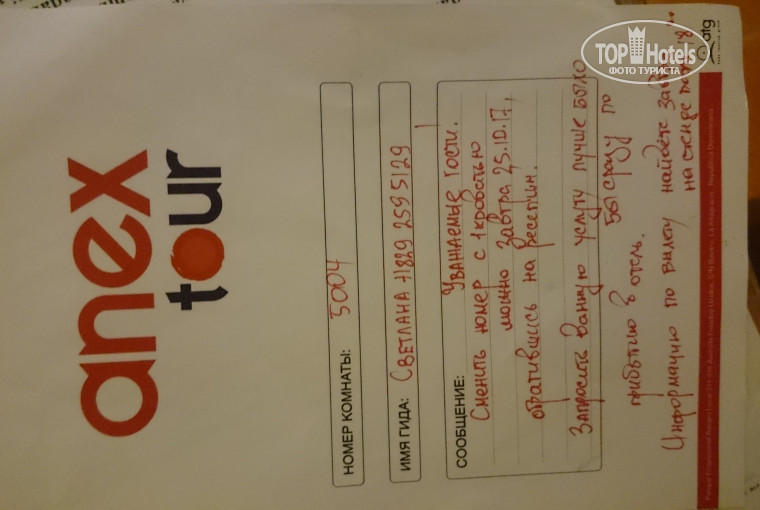 TOP Hotels
ФОТО ТУРИСТА
atg
anex
tour
НОМЕР КОМНАТЫ: 5004
ИМЯ ГИДА: СВЕТЛАНА +1829 2595129
СООБЩЕНИЕ: Уважаемые гости.
Сменить номер с 1 кроватью
можно завтра 25.10.17,
обратившись на ресепшн.
Запросить данную услугу лучше было
бы сразу по
прибытию в отель.
Информацию по вылету найдёте завтра
на стенде после 18